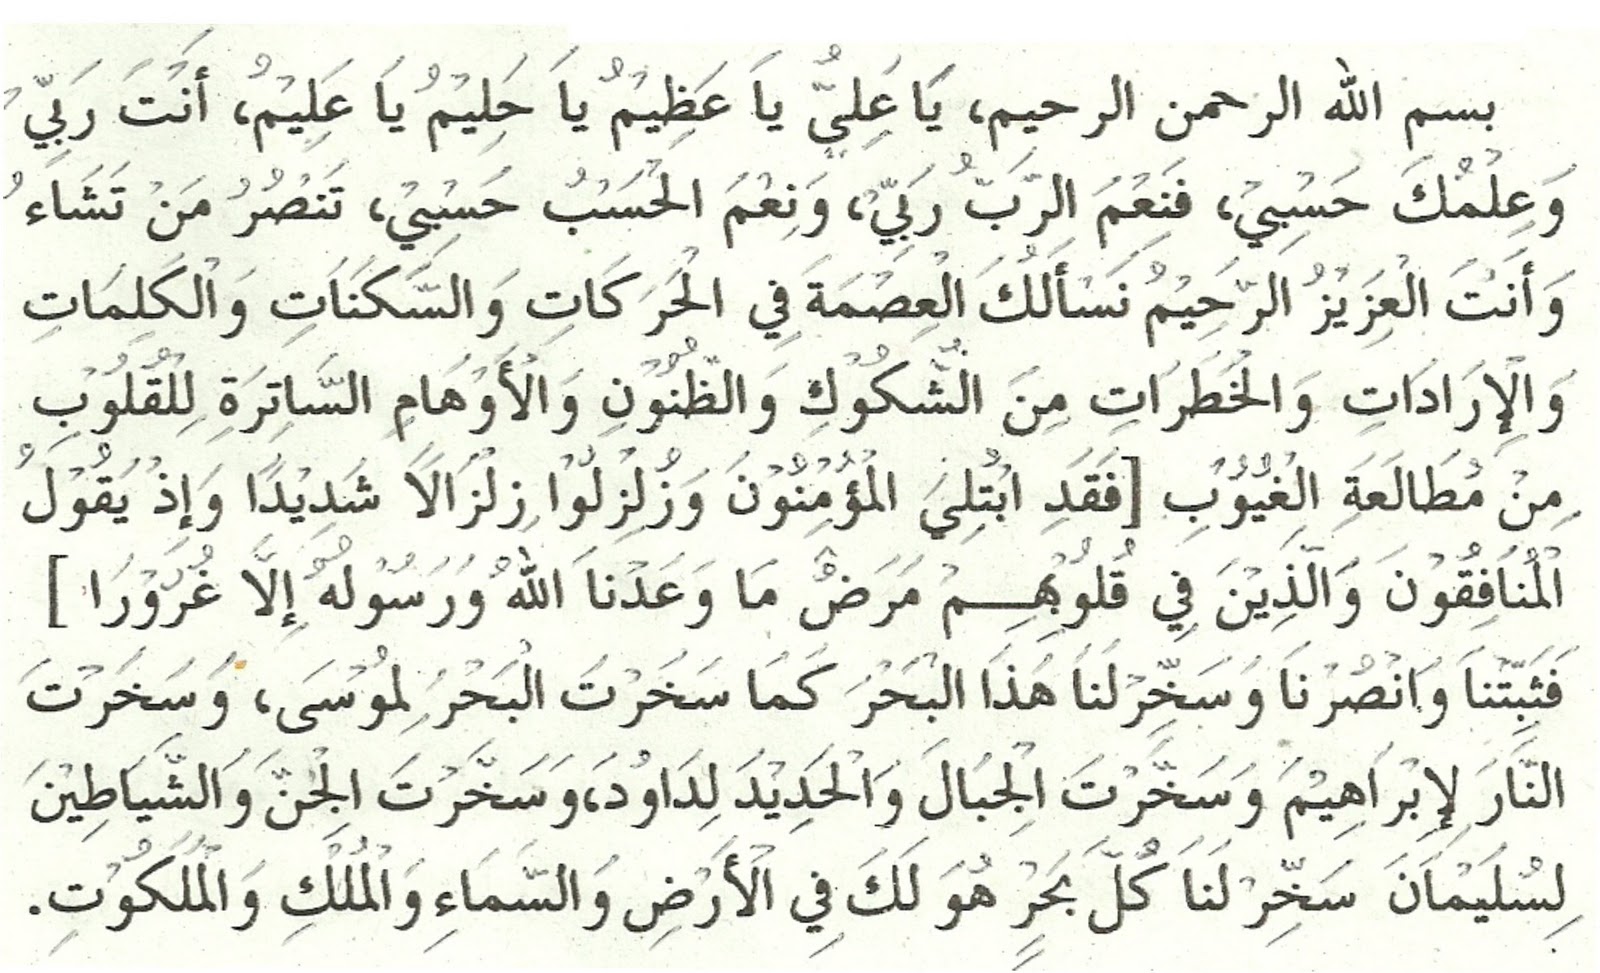 بسم الله الرحمن الرحيم، يَا عَلِيُّ يَا عَظِيْمُ يَا حَلِيْمُ يَا عَلِيْمُ، أَنْتَ رَبِّيْ
وَعِلْمُكَ حَسْبِيْ، فَنِعْمَ الرَّبُّ رَبِّيْ، وَنِعْمَ الْحَسْبُ حَسْبِيْ، تَنْصُرُ مَنْ تَشَاءُ
وَأَنْتَ الْعَزِيْزُ الرَّحِيْمُ نَسْأَلُكَ الْعِصْمَةَ فِي الْحَرَكَاتِ وَالسَّكَنَاتِ وَالْكَلِمَاتِ
وَالْإِرَادَاتِ وَالْخَطَرَاتِ مِنَ الشُّكُوْكِ وَالظُّنُوْنِ وَالْأَوْهَامِ السَّاتِرَةِ لِلْقُلُوْبِ
مِنْ مُطَالَعَةِ الْغُيُوْبِ [فَقَدِ ابْتُلِيَ الْمُؤْمِنُوْنَ وَزُلْزِلُوْا زِلْزَالًا شَدِيْدًا وَإِذْ يَقُوْلُ
الْمُنَافِقُوْنَ وَالَّذِيْنَ فِي قُلُوْبِهِـــمْ مَرَضٌ مَا وَعَدَنَا اللهُ وَرَسُوْلُهُ إِلَّا غُرُوْرًا ]
فَثَبِّتْنَا وَانْصُرْنَا وَسَخِّرْ لَنَا هَذَا الْبَحْرَ كَمَا سَخَّرْتَ الْبَحْرَ لِمُوْسَى، وَسَخَّرْتَ
النَّارَ لِإِبْرَاهِيْمَ وَسَخَّرْتَ الْجِبَالَ وَالْحَدِيْدَ لِدَاوُدَ، وَسَخَّرْتَ الْجِنَّ وَالشَّيَاطِيْنَ
لِسُلَيْمَانَ سَخِّرْ لَنَا كُلَّ بَحْرٍ هُوَ لَكَ فِي الْأَرْضِ وَالسَّمَاءِ وَالْمُلْكِ وَالْمَلَكُوْتِ.